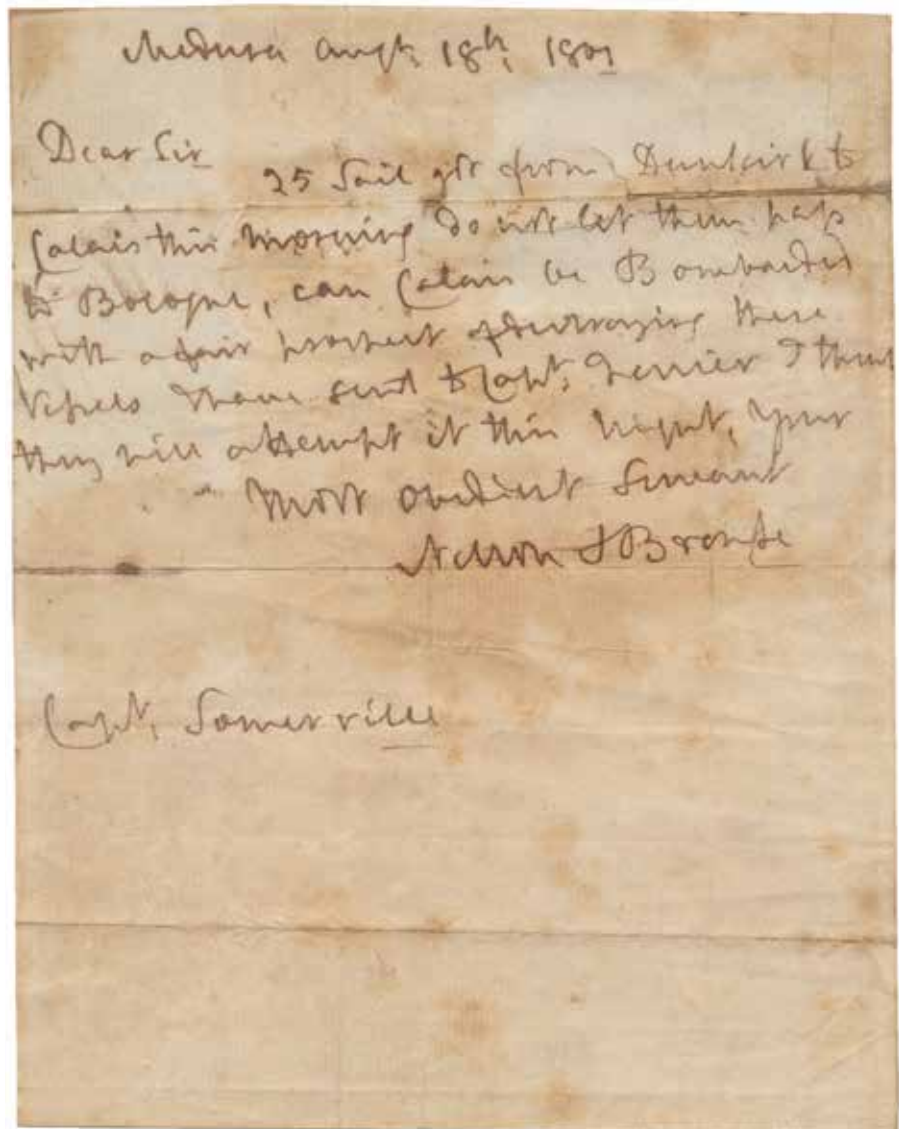 Medusa Augt: 18th: 1801
Dear Sir
25 Sail got from Dunkirk to
Calais this morning do not let them pass
to Bologne, can Calais be Bombarded
with a fair prospect of destroying these
Vessels I have sent to Capt: I think
they will attempt it this night, your
Most Obedient Servant
Nelson & Bronte
Capt: Somerville